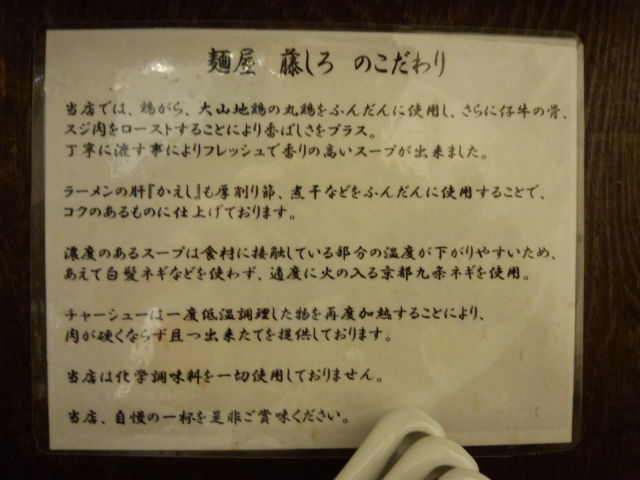 麺屋 藤しろ のこだわり
当店では、鶏がら、大山地鶏の丸鶏をふんだんに使用し、さらに仔牛の骨、
スジ肉をローストすることにより香ばしさをプラス。
丁寧に漉す事によりフレッシュで香りの高いスープが出来ました。
ラーメンの肝『かえし』も厚削り節、煮干などをふんだんに使用することで、
コクのあるものに仕上げております。
濃度のあるスープは食材に接触している部分の温度が下がりやすいため、
あえて白髪ネギなどを使わず、適度に火の入る京都九条ネギを使用。
チャーシューは一度低温調理した物を再度加熱することにより、
肉が硬くならず且つ出来たてを提供しております。
当店は化学調味料を一切使用しておりません。
当店、自慢の一杯を是非ご賞味ください。